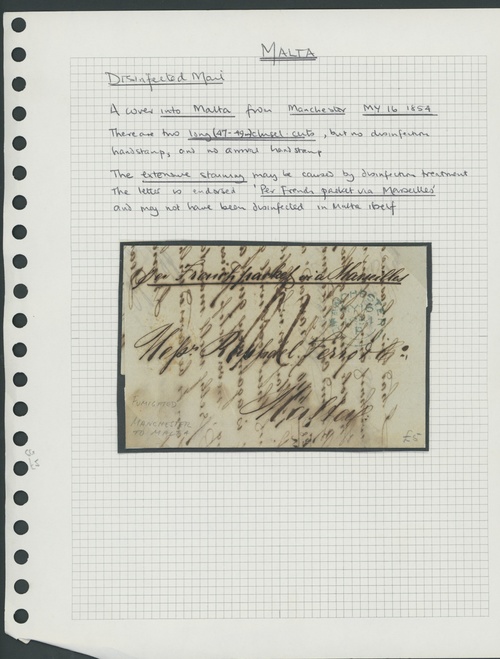 MALTA
Disinfected Mail
A cover into Malta from Manchester MY 16 1854
There are two long (47-49mm) chisel cuts, but no disinfection
handstamp, and no arrival handstamp
The extensive staining may be caused by disinfection treatment
The letter is endorsed 'Per French packet via Marseilles'
and may not have been disinfected in Malta itself
per French packet via Marseilles
Messrs Raphael Ferro & Co
Malta
MANCHESTER
TO MALTA
£5